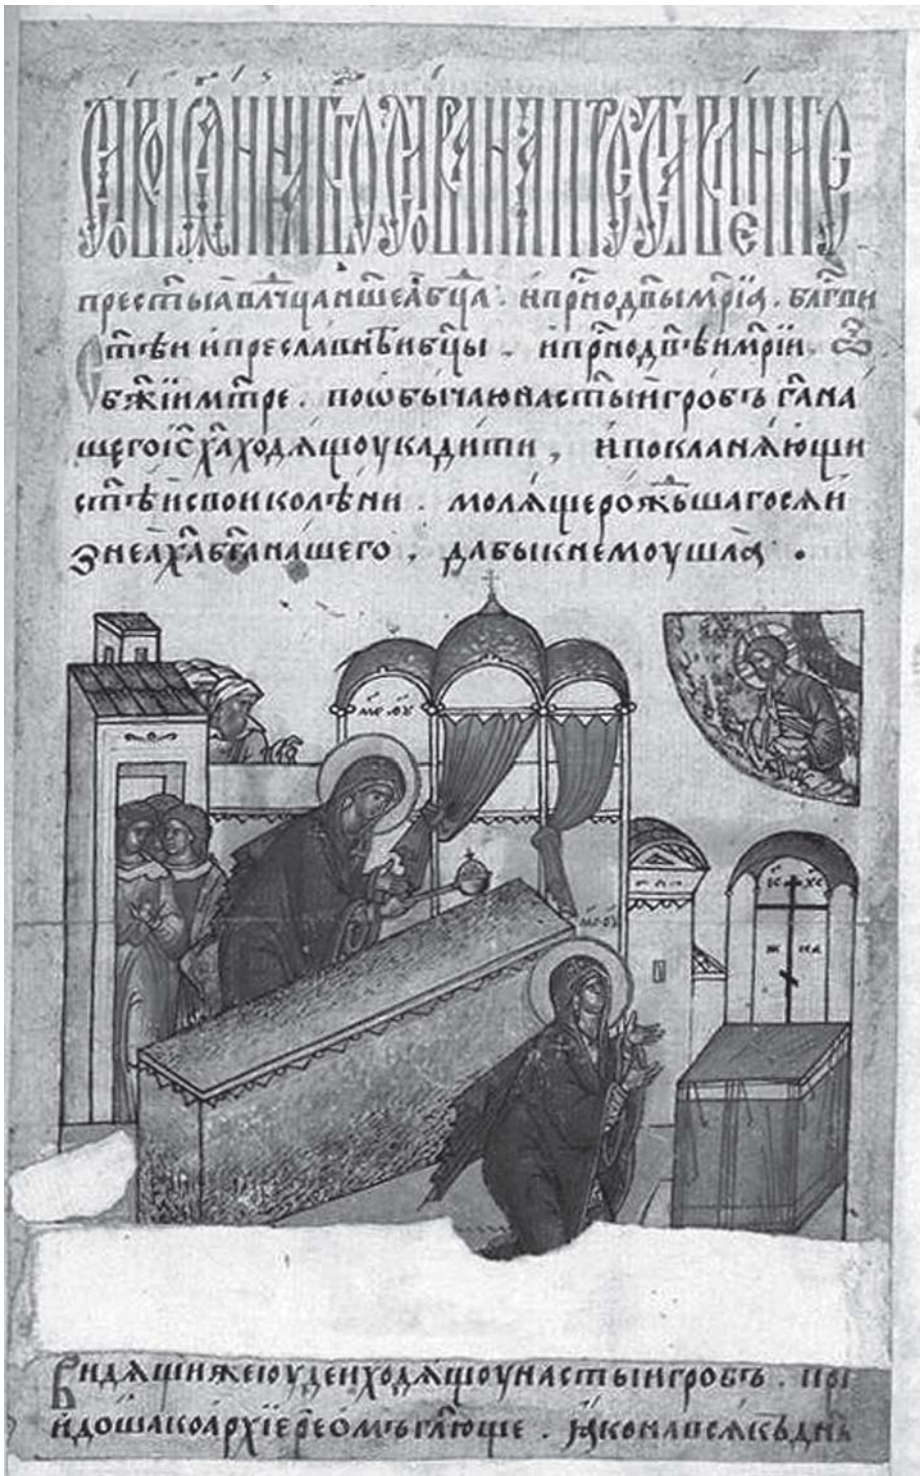 СЛОВО ІѠАННА БГОСЛОВА НА ПРЕСТАВЛЕНИЕ
престы҃ѧ влⷣчца нш҃еѧ бц҃а . и прⷭ҇нодв҃ы мр҃іѧ . блгⷭ҇ви
Ст҃ѣи и преславнѣи бц҃ы . и прⷭ҇нодв҃ѣ мр҃іи .
бж҃іи мт҃ре . по ѡбычаю на ст҃ыи гробъ гⷭ҇а на
шего іс҃ х҃а ходѧщоу кадити , и покланѧющи
ст҃ѣи свои колѣни . молѧще рождьшагосѧ и
з неѧ х҃а бг҃а нашего . дабы к немоу шла .
мр ѳу
мр ѳу
іс хс
ка
Видѧщи же юудеи ходѧщоу на ст҃ыи гробъ . при
идоша ко архіереѡмъ гл҃юще . ꙗко на всѧкъ дн҃ь